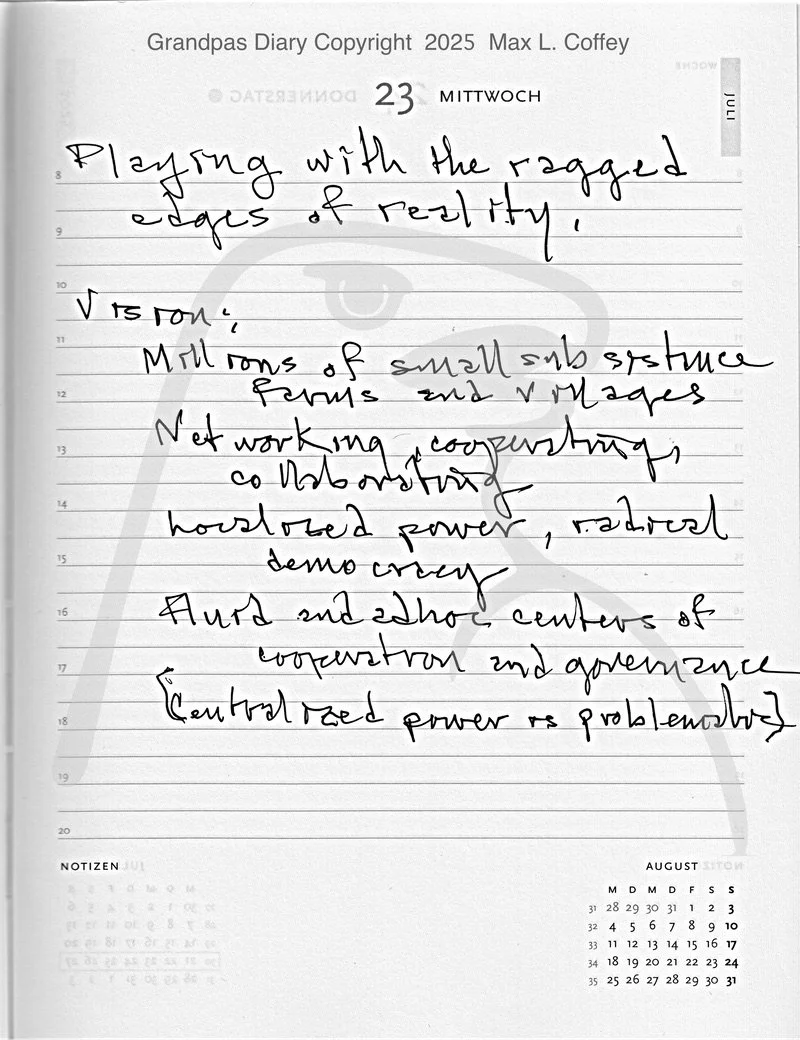 Grandpas Diary Copyright 2025 Max L. Coffey
23 MITTWOCH
JULI
Playing with the ragged
edges of reality.
Vision:
Millions of small subsystence
farms and villages
Networking, cooperating,
collaborating
Localized power, radical
democracy
Fluid and adhoc centers of
cooperation and governance
{Centralized power is problematic}
8
9
10
11
12
13
14
15
16
17
18
19
20
NOTIZEN
AUGUST
M D M D F S S
31 28 29 30 31 1 2 3
32 4 5 6 7 8 9 10
33 11 12 13 14 15 16 17
34 18 19 20 21 22 23 24
35 25 26 27 28 29 30 31